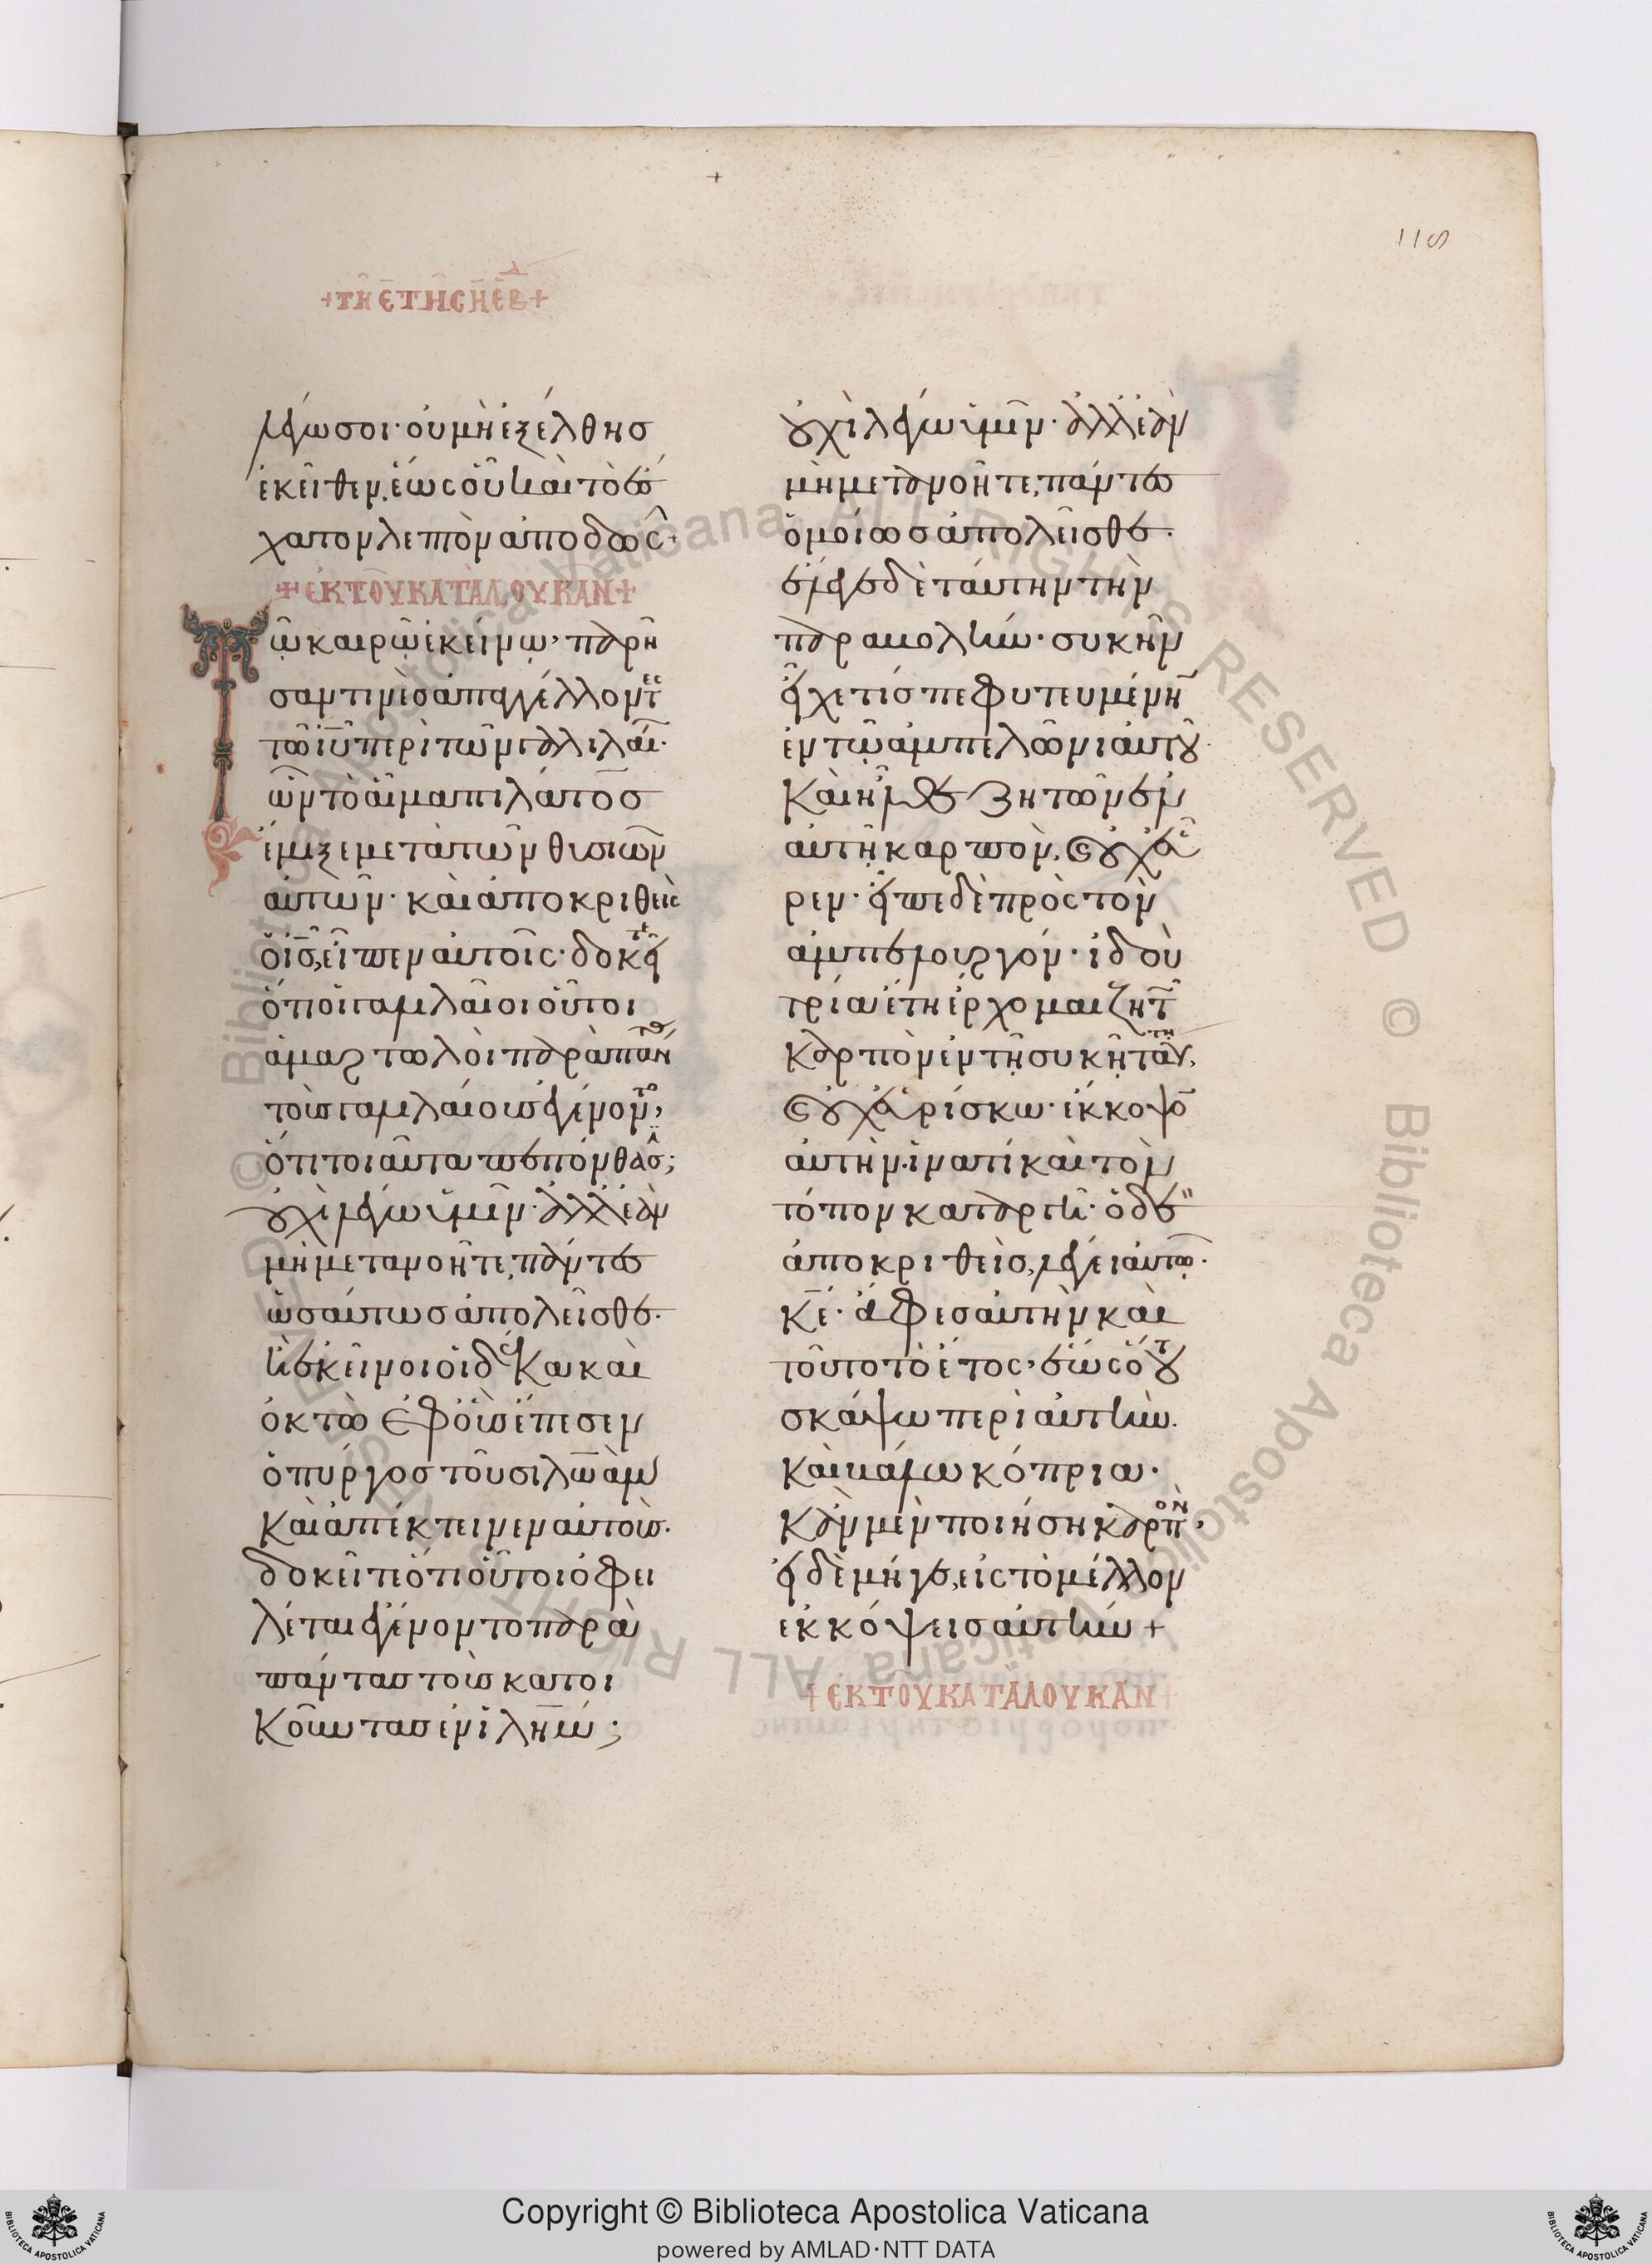 +
115
+τῆ ε̄ τῆς η̄ ἑβδ+
λέγω σοι· οὐ μὴ ἐξέλθης
ἐκεῖθεν, ἕως οὗ καὶ τὸ ἔσ
χατον λεπτὸν ἀποδῶς+
+ἐκ τοῦ κατὰ λουκᾶν+
Τῶ καιρῶ ἐκείνω, παρῆ
σάν τινὲς ἀπαγγέλλοντες
τῶ ιῡ περὶ τῶν γαλιλαί·
ων τὸ αἷμα πιλάτος
ἔμιξε μετὰ τῶν θυσιῶν
αὐτῶν· καὶ ἀποκριθεὶς
ὁ ις̄, εἶπεν αὐτοῖς· δοκεῖτε
ὅτι οἱ γαλιλαῖοι οὗτοι
ἁμαρτωλοὶ παρὰ πάντας
τοὺς γαλιλαίους ἐγένοντο,
ὅτι τοιαῦτα πεπόνθασιν;
οὐχὶ λέγω ὑμῖν· ἀλλ' ἐὰν
μὴ μετανοῆτε, πάντες
ὡσαύτως ἀπολεῖσθε·
ἢ ἐκεῖνοι οἱ δέκα καὶ
ὀκτὼ ἐφ' οὓς ἔπεσεν
ὁ πύργος τοῦ σιλωὰμ
καὶ ἀπέκτεινεν αὐτούς·
δοκεῖτε ὅτι οὗτοι ὀφει
λέται ἐγένοντο παρὰ
πάντας τοὺς κατοι
κοῦντας ἐν ἱλημ̄;
οὐχὶ λέγω ὑμῖν· ἀλλ' ἐὰν
μὴ μετανοῆτε, πάντες
ὁμοίως ἀπολεῖσθε·
ἔλεγε δὲ ταύτην τὴν
παραβολήν· συκῆν
εἶχε τίς πεφυτευμένην
ἐν τῶ ἀμπελῶνι αὐτοῦ·
καὶ ἦλθε ζητῶν ἐν
αὐτῆ καρπὸν, καὶ οὐχ εὗ
ρεν· εἶπε δὲ πρὸς τὸν
ἀμπελουργόν· ἰδοὺ
τρία ἔτη ἔρχομαι ζητῶν
καρπὸν ἐν τῆ συκῆ ταύτη,
καὶ οὐχ εὑρίσκω· ἔκκοψον
αὐτήν. ἱνατί καὶ τὸν
τόπον καταργεῖ· ὁ δὲ
ἀποκριθεὶς, λέγει αὐτῶ·
κε̄· ἄφες αὐτὴν καὶ
τοῦτο τὸ ἔτος, ἕως ὅτου
σκάψω περὶ αὐτὴν.
καὶ βάλω κόπρια·
κἂν μὲν ποιήση καρπὸν,
εἰ δὲ μήγε, εἰς τὸ μέλλον
ἐκκόψεις αὐτήν+
+ἐκ τοῦ κατὰ λουκᾶν+
Copyright © Biblioteca Apostolica Vaticana
powered by AMLAD·NTT DATA